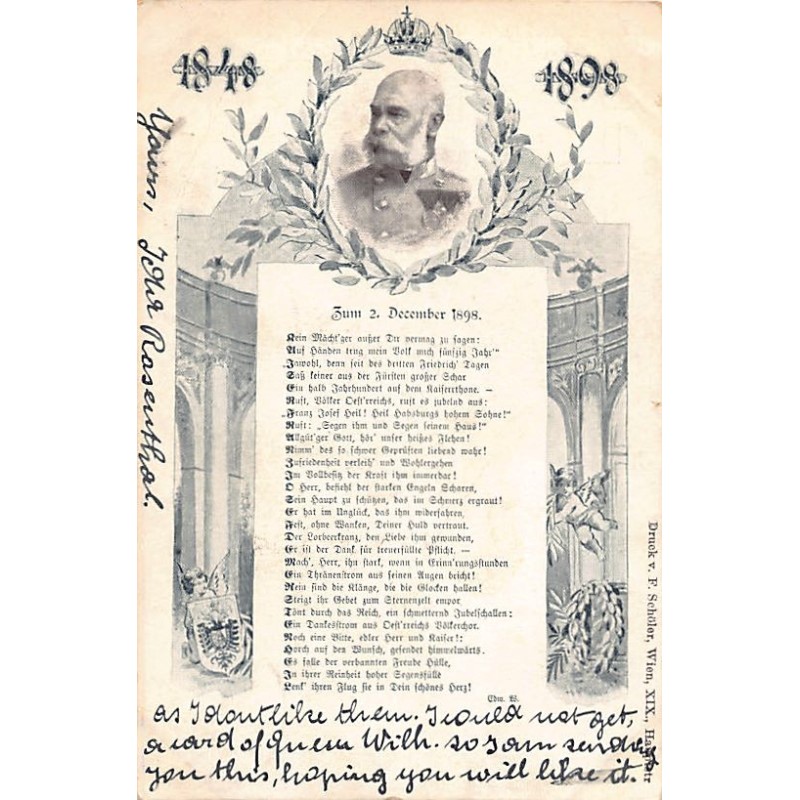 1848
1898
Zum 2. December 1898.
Kein Mächt'ger außer Dir vermag zu sagen:
„Auf Händen trug mein Volk mich fünfzig Jahr'“
„Jawohl, denn seit des dritten Friedrich' Tagen
Saß keiner aus der Fürsten großer Schar
Ein halb Jahrhundert auf dem Kaiserthrone. —
Ruft, Völker Oest'rreichs, ruft es jubelnd aus:
„Franz Josef Heil! Heil Habsburgs hohem Sohne!“
Ruft: „Segen ihm und Segen seinem Haus!“
Allgüt'ger Gott, hör' unser heißes Flehen!
Nimm' des so schwer Geprüften liebend wahr!
Zufriedenheit verleih' und Wohlergehen
Im Vollbesitz der Kraft ihm immerdar!
O Herr, befiehl der starken Engeln Scharen,
Sein Haupt zu schützen, das im Schmerz ergraut!
Er hat im Unglück, das ihm widerfahren,
Fest, ohne Wanken, Deiner Huld vertraut.
Der Lorbeerkranz, den Liebe ihm gewunden,
Er ist der Dank für treuerfüllte Pflicht. —
Mach', Herr, ihn stark, wenn in Erinn'rungsstunden
Ein Thränenstrom aus seinen Augen bricht!
Rein sind die Klänge, die die Glocken hallen!
Steigt ihr Gebet zum Sternenzelt empor,
Tönt durch das Reich, ein schmetternd Jubelschallen:
Ein Dankesstrom aus Oest'rreichs Völkerchor.
Noch eine Bitte, edler Herr und Kaiser!:
Horch auf den Wunsch, gesendet himmelwärts.
Es falle der verbannten Freude Hülle,
In ihrer Reinheit hoher Segensfülle
Lenk' ihren Flug sie in Dein schönes Herz!
Edm. W.
as I dont like them. I could not get,
a card of quem Wilh. so I am sending
you this, hoping you will like it.
Yours, Rosenthal.
Druck v. F. Schöler, Wien, XIX.,